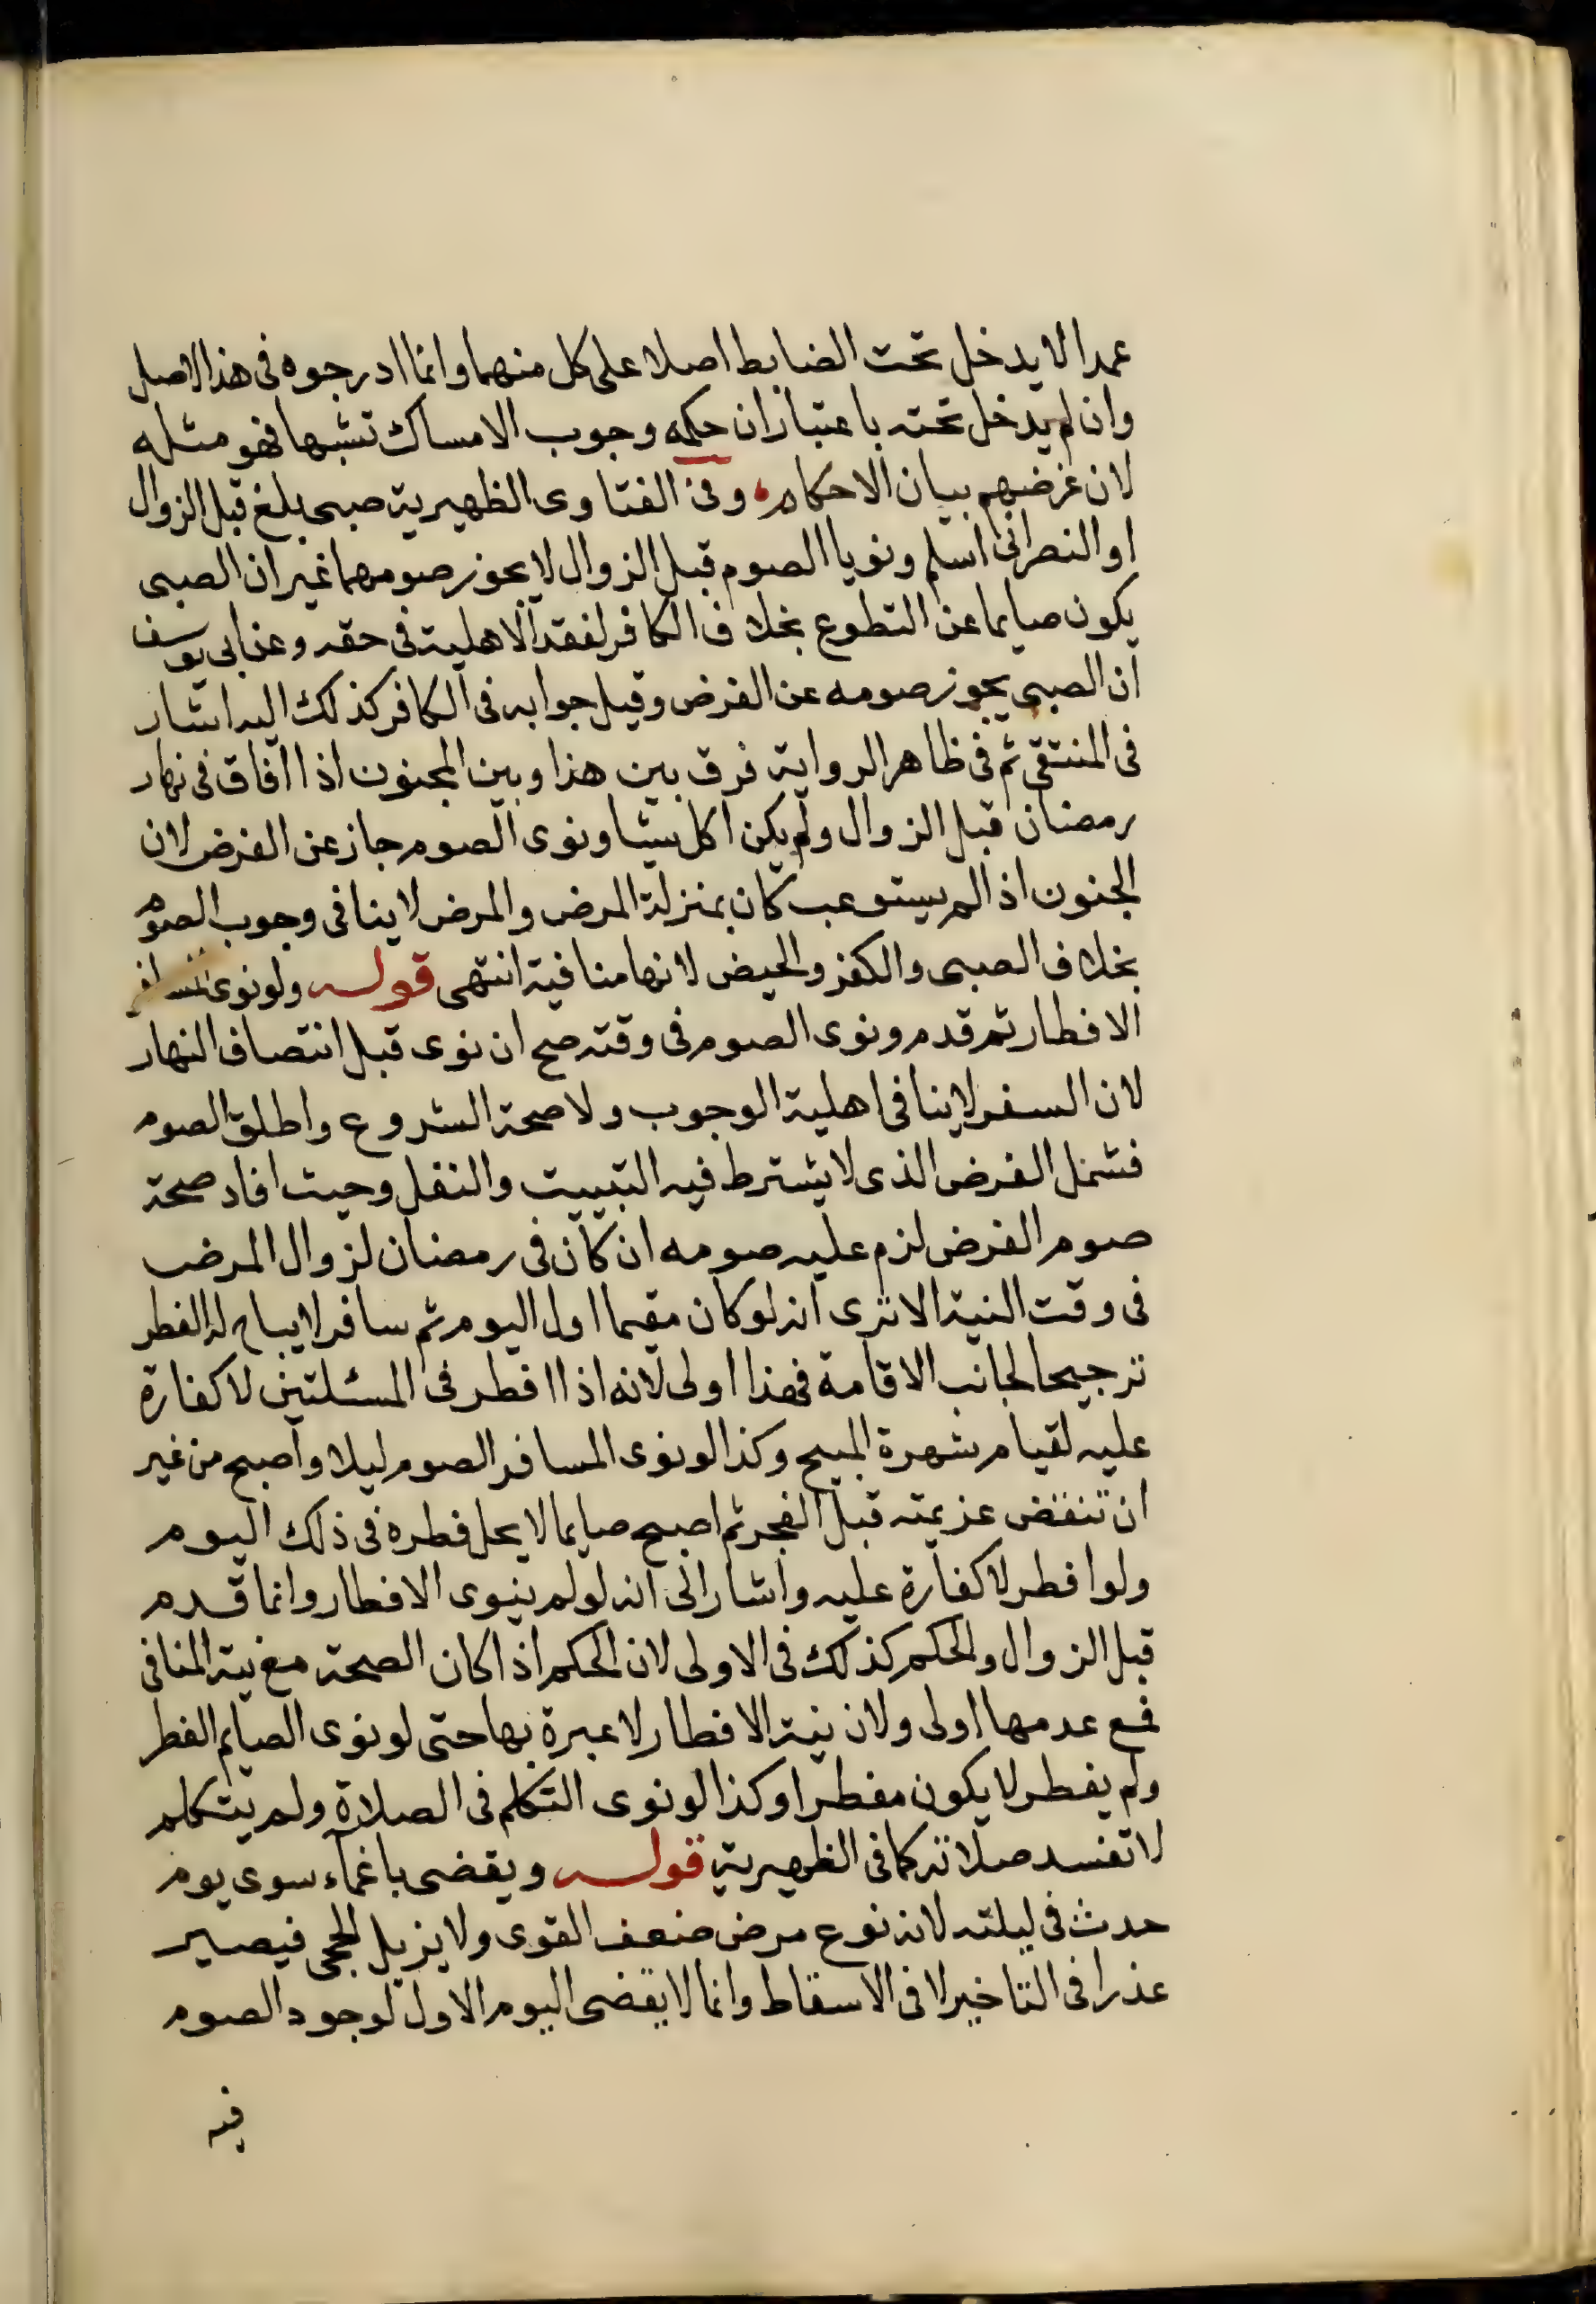 عمدا لا يدخل تحت الضابط اصلا على كل منهما وانما ادرجوه فى هذا الاصل
وان لم يدخل تحته باعتبار ان حكمه وجوب الامساك تشبها فهو مثله
لان غرضهم بيان الاحكام وفى الفتاوى الظهيرية صبى بلغ قبل الزوال
او النصرانى اسلم ونويا الصوم قبل الزوال لا يجوز صومهما غير ان الصبى
يكون صايما عن التطوع بخلاف الكافر لفقد الاهلية فى حقه وعن ابى يوسف
ان الصبى يجوز صومه عن الفرض وقيل جوابه فى الكافر كذلك اليه اشار
فى المنتقى ثم فى ظاهر الرواية فرق بين هذا وبين المجنون اذا افاق فى نهار
رمضان قبل الزوال ولم يكن اكل شيئا ونوى الصوم جاز عن الفرض لان
الجنون اذا لم يستوعب كان بمنزلة المرض والمرض لا ينافى وجوب الصوم
بخلاف الصبى والكفر والحيض لانها منافية انتهى قوله ولو نوى المسافر
الافطار ثم قدم ونوى الصوم فى وقته صح ان نوى قبل انتصاف النهار
لان السفر لا ينافى اهلية الوجوب ولا صحة الشروع واطلق الصوم
فشمل الفرض الذى لا يشترط فيه التبييت والنفل وحيث افاد صحة
صوم الفرض لزم عليه صومه ان كان فى رمضان لزوال المرض
فى وقت النية الا ترى انه لو كان مقيما اول اليوم ثم سافر لا يباح له الفطر
ترجيحا لجانب الاقامة فهذا اولى لانه اذا افطر فى المسئلتين لا كفارة
عليه لقيام شهرة المبيح وكذا لو نوى المسافر الصوم ليلا واصبح من غير
ان تنقض عزيمته قبل الفجر ثم اصبح صايما لا يحل فطره فى ذلك اليوم
ولو افطر لا كفارة عليه واشار الى انه لو لم ينوى الافطار وانما قدم
قبل الزوال والحكم كذلك فى الاولى لان الحكم اذا كان الصحة مع نية المنافى
فمع عدمها اولى ولان نية الافطار لا عبرة بها حتى لو نوى الصايم الفطر
ولم يفطر لا يكون مفطرا وكذا لو نوى التكلم فى الصلاة ولم يتكلم
لا تفسد صلاته كما فى الظهيرية قوله ويقضى باغماء سوى يوم
حدث فى ليلته لانه نوع مرض ضعف القوى ولا يزيل الحجى فيصير
عذرا فى التاخير لا فى الاسقاط وانما لا يقضى اليوم الاول لوجود الصوم
فيه